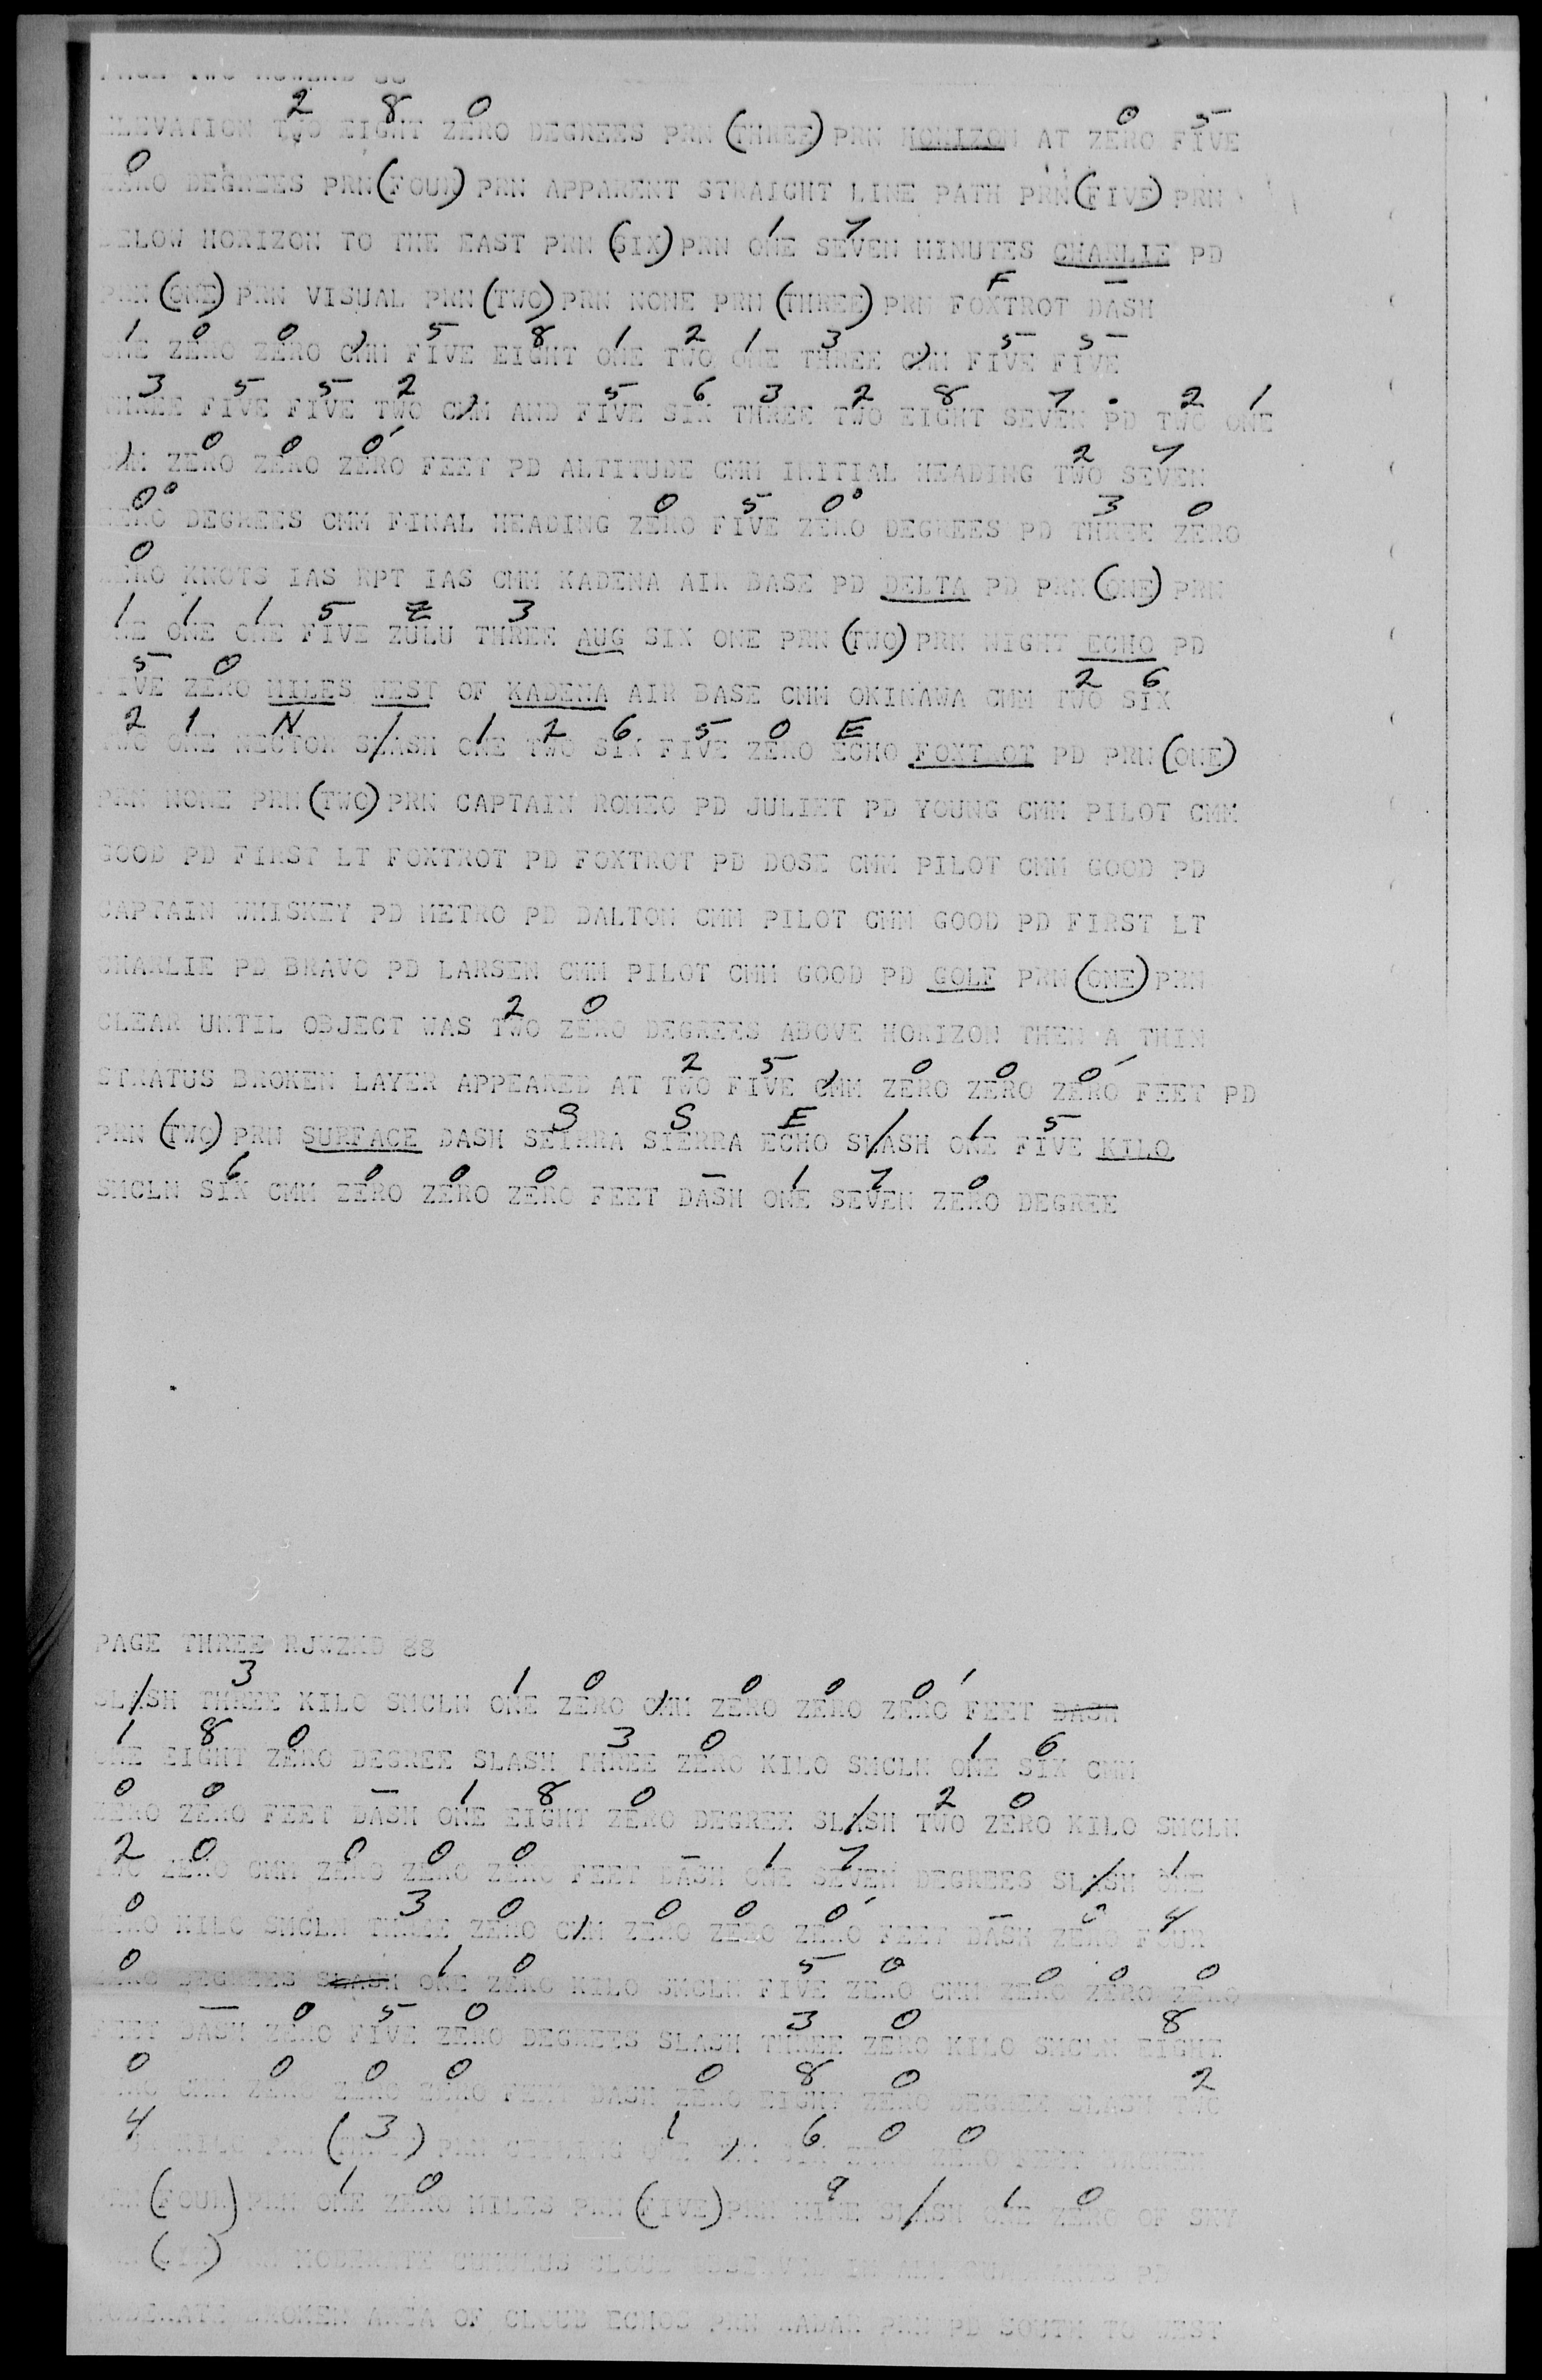 2 8 0 0 5
ELEVATION TWO EIGHT ZERO DEGREES PRN (THREE) PRN HORIZON AT ZERO FIVE
0
ZERO DEGREES PRN (FOUR) PRN APPARENT STRAIGHT LINE PATH PRN (FIVE) PRN
1 7
BELOW HORIZON TO THE EAST PRN (SIX) PRN ONE SEVEN MINUTES CHARLIE PD
F —
PRN (ONE) PRN VISUAL PRN (TWO) PRN NONE PRN (THREE) PRN FOXTROT DASH
1 0 0 , 5 8 1 2 1 3 , 5 5
ONE ZERO ZERO CMM FIVE EIGHT ONE TWO ONE THREE CMM FIVE FIVE
3 5 5 2 , 5 6 3 2 8 7 . 2 1
THREE FIVE FIVE TWO CMM AND FIVE SIX THREE TWO EIGHT SEVEN PD TWO ONE
, 0 0 0' 2 7
CMM ZERO ZERO ZERO FEET PD ALTITUDE CMM INITIAL HEADING TWO SEVEN
0° 0 5 0° 3 0
ZERO DEGREES CMM FINAL HEADING ZERO FIVE ZERO DEGREES PD THREE ZERO
0
ZERO KNOTS IAS RPT IAS CMM KADENA AIR BASE PD DELTA PD PRN (ONE) PRN
1 1 1 5 Z 3
NE ONE ONE FIVE ZULU THREE AUG SIX ONE PRN (TWO) PRN NIGHT ECHO PD
5 0 2 6
FIVE ZERO MILES WEST OF KADENA AIR BASE CMM OKINAWA CMM TWO SIX
2 1 N / 1 2 6 5 0 E
TWO ONE NECTOR SLASH ONE TWO SIX FIVE ZERO ECHO FOXTROT PD PRN (ONE)
PRN NONE PRN (TWO) PRN CAPTAIN ROMEO PD JULIET PD YOUNG CMM PILOT CMM
GOOD PD FIRST LT FOXTROT PD FOXTROT PD DOSE CMM PILOT CMM GOOD PD
CAPTAIN WHISKEY PD METRO PD DALTON CMM PILOT CMM GOOD PD FIRST LT
CHARLIE PD BRAVO PD LARSEN CMM PILOT CMM GOOD PD GOLF PRN (ONE) PRN
2 0
CLEAR UNTIL OBJECT WAS TWO ZERO DEGREES ABOVE HORIZON THEN A THIN
2 5 , 0 0 0'
STRATUS BROKEN LAYER APPEARED AT TWO FIVE CMM ZERO ZERO ZERO FEET PD
S S E / 1 5
PRN (TWO) PRN SURFACE DASH SEIRRA SIERRA ECHO SLASH ONE FIVE KILO
6 0 0 0 — 1 7 0
SMCLN SIX CMM ZERO ZERO ZERO FEET DASH ONE SEVEN ZERO DEGREE
PAGE THREE RJWZKD 88
/ 3 1 0 , 0 0 0'
SLASH THREE KILO SMCLN ONE ZERO CMM ZERO ZERO ZERO FEET DASH
1 8 0 3 0 1 6
ONE EIGHT ZERO DEGREE SLASH THREE ZERO KILO SMCLN ONE SIX CMM
0 0 — 1 8 0 / 2 0
ZERO ZERO FEET DASH ONE EIGHT ZERO DEGREE SLASH TWO ZERO KILO SMCLN
2 0 0 0 0 — 1 7 / 1
TWO ZERO CMM ZERO ZERO ZERO FEET DASH ONE SEVEN DEGREES SLASH ONE
0 3 0 , 0 0 0' — 0 4
ZERO KILO SMCLN THREE ZERO CMM ZERO ZERO ZERO FEET DASH ZERO FOUR
0 1 0 5 0 0 0 0
ZERO DEGREES SLASH ONE ZERO KILO SMCLN FIVE ZERO CMM ZERO ZERO ZERO
— 0 5 0 3 0 8
FEET DASH ZERO FIVE ZERO DEGREES SLASH THREE ZERO KILO SMCLN EIGHT
0 0 0 0 0 8 0 2
CMM ZERO ZERO ZERO FEET DASH ZERO EIGHT ZERO DEGREE SLASH TWO
4 (3) 1 , 6 0 0
KILO PRN PRN CEILING ONE CMM SIX ZERO ZERO FEET BROKEN
1 0 9 / 1 0
PRN (FOUR) PRN ONE ZERO MILES PRN (FIVE) PRN NINE SLASH ONE ZERO OF SKY
(SIX) PRN MODERATE CUMULUS CLOUD OBSERVED IN ALL QUADRANTS PD
MODERATE BROKEN AREA OF CLOUD ECHOS PRN RADAR PRN PD SOUTH TO WEST